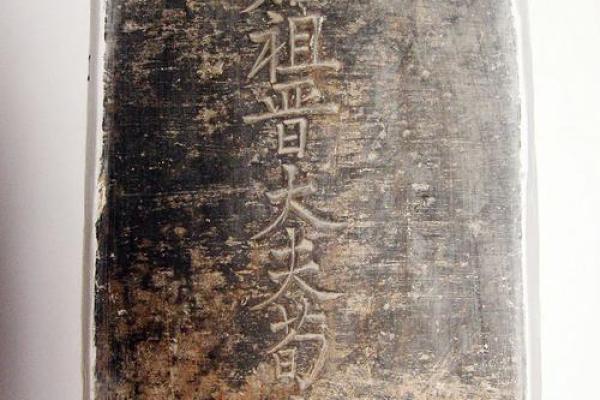 祖晋大夫荀